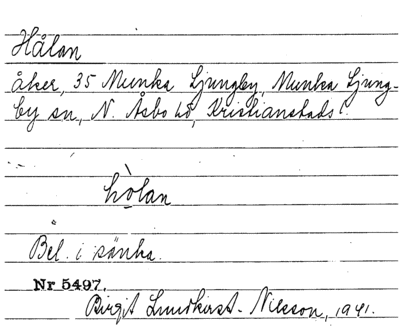 Hålan
åker, 35 Munka Ljungby, Munka Ljung-
by sn, N. Åsbo hd, Kristianstads l.
hòlan
Bel. i sänka.
Nr 5497.
Birgit Lundkvist-Nilsson, 1941.